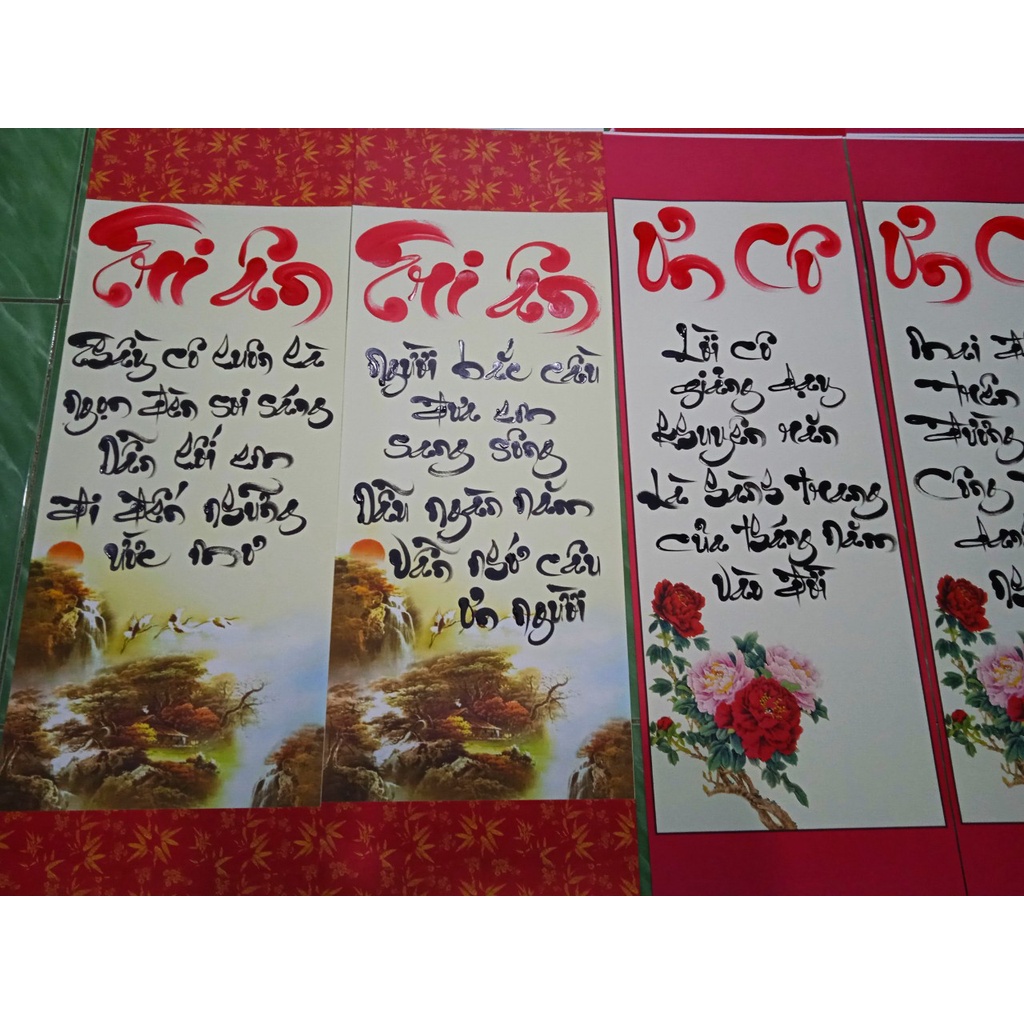 Tri Ân
Thầy cô luôn là
ngọn đèn soi sáng
Dẫn lối em
đi đến những
ước mơ
Tri Ân
Người bắc cầu
đưa em
sang sông
Dẫu ngàn năm
vẫn nhớ câu
ơn người
Ơn Cô
Lời cô
giảng dạy
khuyên răn
Là hành trang
của tháng năm
vào đời
Ơn
Mai
trên
đường
Công